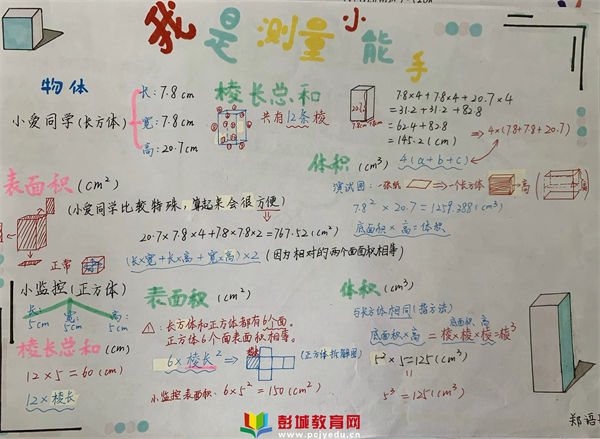 我是测量小能手
物体
小爱同学(长方体)
长:7.8cm
宽:7.8cm
高:20.7cm
棱长总和
共有12条棱
7.8×4+7.8×4+20.7×4
=31.2+31.2+82.8
=62.4+82.8
=145.2(cm)
⇒4×(7.8+7.8+20.7)
4(a+b+c)
表面积(cm²)
(小爱同学比较特殊,算起来会很方便)
20.7×7.8×4+7.8×7.8×2=767.52(cm²)
正常
(长×宽+长×高+宽×高)×2(因为相对的两个面面积相等)
体积(cm³)
演试图:一张纸
→一个长方体
高
7.8²×20.7=1259.388(cm³)
底面积×高=体积
小监控(正方体)
长:5cm
宽:5cm
高:5cm
棱长总和(cm)
12×5=60(cm)
12×棱长
表面积(cm²)
:长方体和正方体都有6个面。
正方体6个面表面积相等。
6×棱长²⇒
(正方体拆解图)
小监控表面积:6×5²=150(cm²)
体积(cm³)
与长方体相同(指方法)
底面积×高=棱×棱×棱=棱³
底面积 高
5²×5=125(cm³)
5³=125(cm³)
郑语
彭城教育网
www.pcjyedu.cn